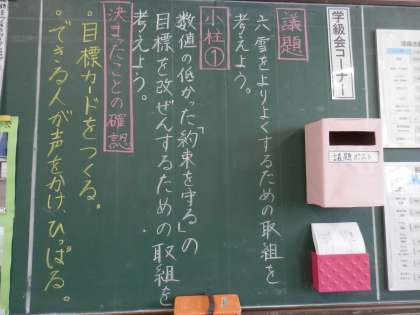 学級会コーナー
議題
六雪をよりよくするための取組を
考えよう。
小柱①
数値の低かった「約束を守る」の
目標を改ぜんするための取組を
考えよう。
決まったことの確認
・目標カードをつくる。
・できる人が声をかけ、ひっぱる。
議題ポスト